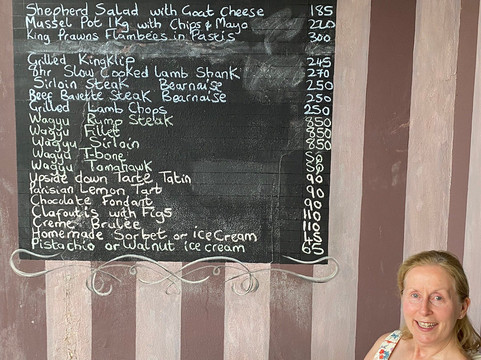 Shepherd Salad with Goat Cheese 185
Mussel Pot 1Kg with Chips & Mayo 220
King Prawns Flambées in Pastis 300
Grilled Kingklip 245
6hr Slow Cooked Lamb Shank 270
Sirloin Steak Bearnaise 250
Beef Bavette Steak Bearnaise 250
Grilled Lamb Chops 250
Wagyu Rump Steak 850
Wagyu Fillet 850
Wagyu Sirloin 850
Wagyu T-bone SQ
Wagyu Tomahawk SQ
Upside down Tarte Tatin 90
Parisian Lemon Tart 90
Chocolate Fondant 90
Clafoutis with Figs 110
Creme Brulee 110
Homemade Sorbet or ice Cream 45
Pistachio or Walnut ice cream 65